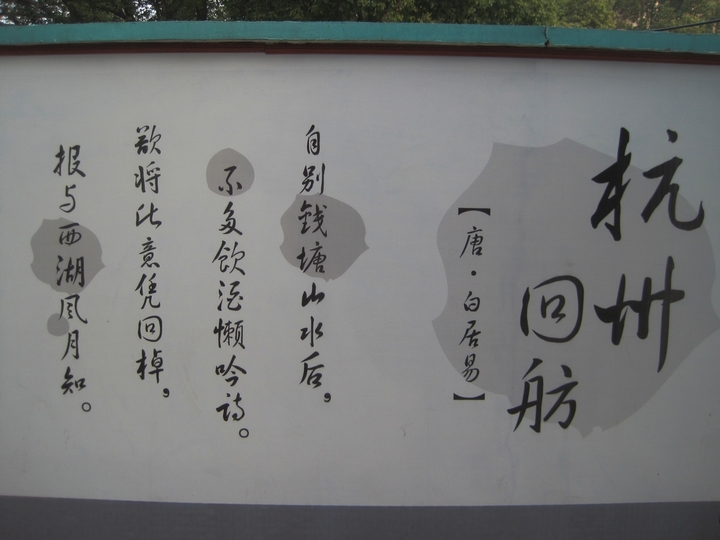 杭州
回舫
【唐·白居易】
自别钱塘山水后，
不多饮酒懒吟诗。
欲将此意凭回棹，
报与西湖风月知。